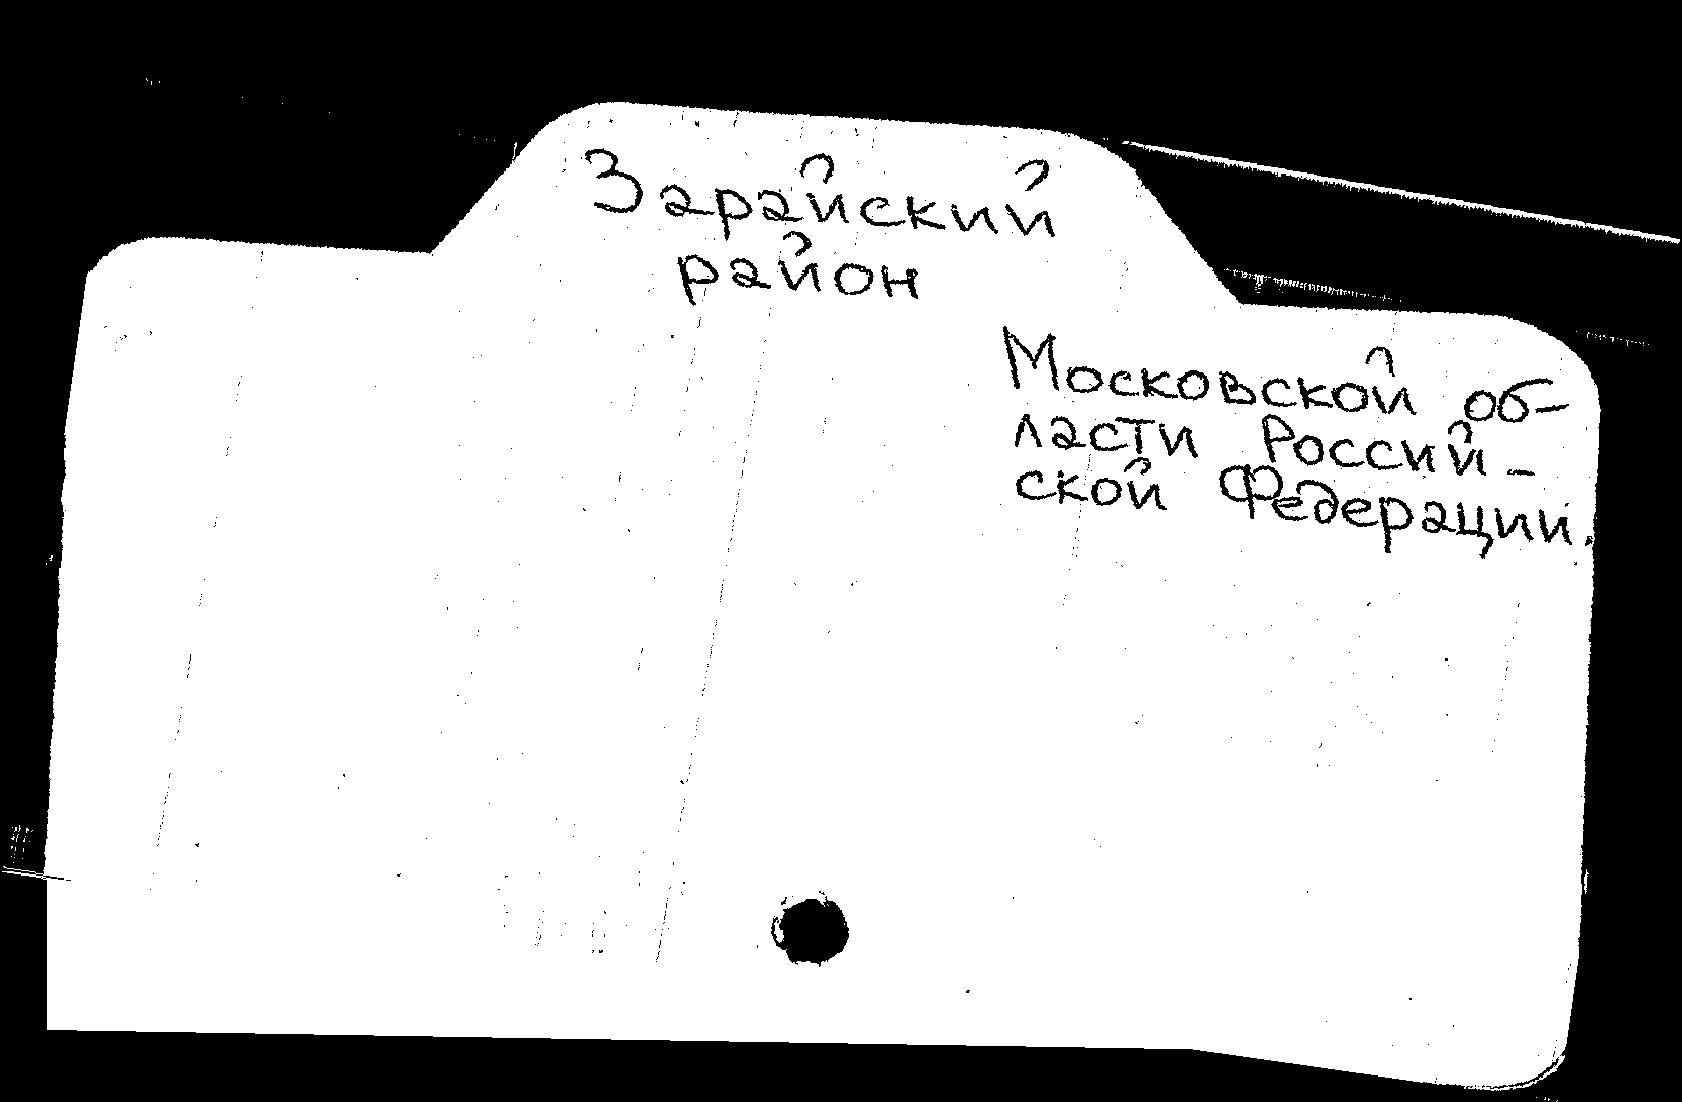 Зарайский
район
Московской об-
ласти Россий-
ской Федерации.